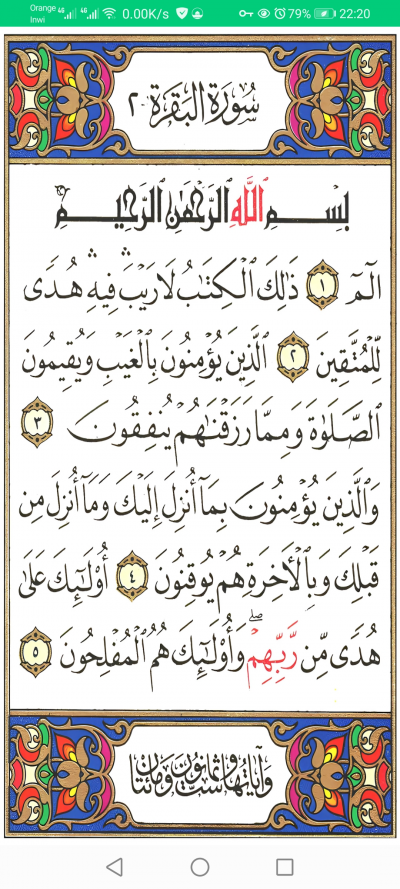 Orange 4G 4G 0.00K/s 79% 22:20
Inwi
سُورَةُ البَقَرَة ٢
بِسْمِ ٱللَّهِ ٱلرَّحْمَٰنِ ٱلرَّحِيمِ
الٓمٓ ١ ذَٰلِكَ ٱلْكِتَٰبُ لَا رَيْبَ فِيهِ هُدًى
لِّلْمُتَّقِينَ ٢ ٱلَّذِينَ يُؤْمِنُونَ بِٱلْغَيْبِ وَيُقِيمُونَ
ٱلصَّلَوٰةَ وَمِمَّا رَزَقْنَٰهُمْ يُنفِقُونَ ٣
وَٱلَّذِينَ يُؤْمِنُونَ بِمَآ أُنزِلَ إِلَيْكَ وَمَآ أُنزِلَ مِن
قَبْلِكَ وَبِٱلْءَاخِرَةِ هُمْ يُوقِنُونَ ٤ أُو۟لَٰٓئِكَ عَلَىٰ
هُدًى مِّن رَّبِّهِمْ ۖ وَأُو۟لَٰٓئِكَ هُمُ ٱلْمُفْلِحُونَ ٥
وَآيَاتُهَا سِتٌّ وَثَمَانُونَ وَمِائَتَانِ